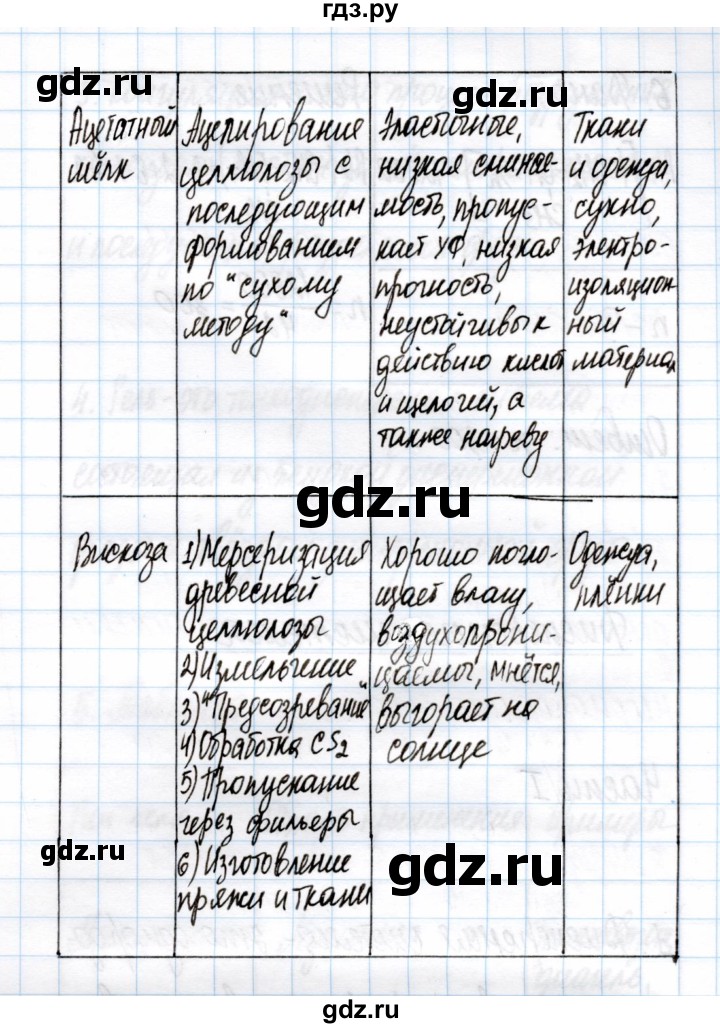 гдз.ру
gdz.ru
gdz.ru
Ацетатный
шёлк
Ацелирование
целлюлозы с
последующим
формованием
по "сухому
методу"
Эластичные,
низкая сминае-
мость, пропус-
кает УФ, низкая
прочность,
неустойчивы к
действию кислот
и щелочей, а
также нагреву
Ткани
и одежда,
сукно,
электро-
изоляцион
ный
материал
gdz.ru
Вискоза
1) Мерсеризация
древесной
целлюлозы
2) Измельчение
3) "Предсозревание"
4) Обработка CS2
5) Пропускание
через фильеры
6) Изготовление
пряжи и ткани
Хорошо погло-
щает влагу,
воздухопрони-
цаемы, мнётся,
выгорает на
солнце
Одежда,
плёнки
gdz.ru
gdz.ru
gdz.ru